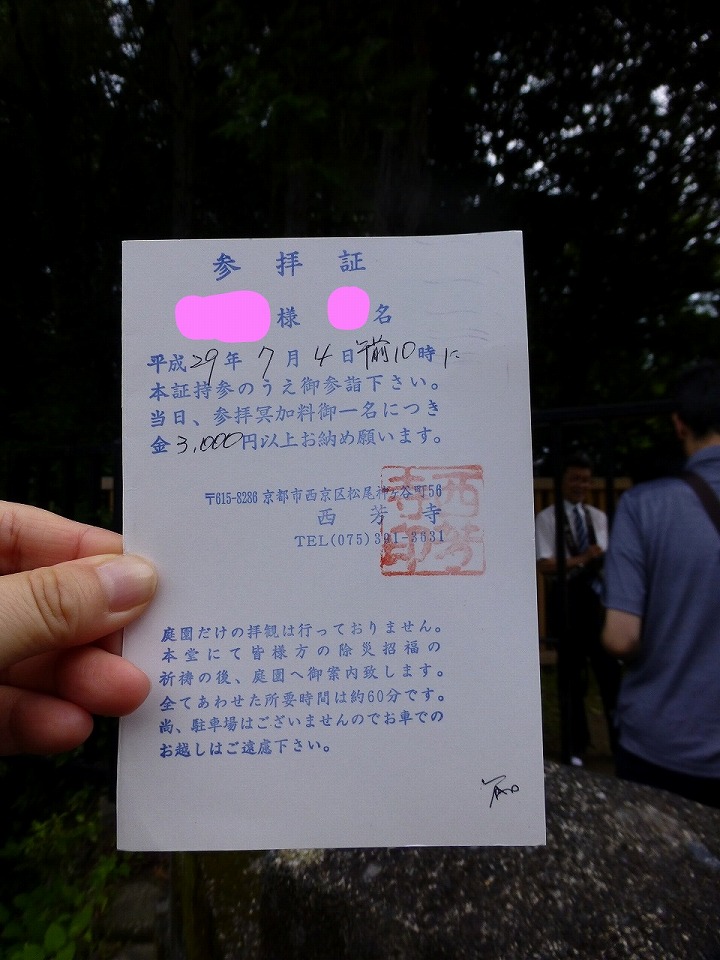 参拝証
様 名
平成29年7月4日午前10時に
本証持参のうえ御参詣下さい。
当日、参拝冥加料御一名につき
金3,000円以上お納め願います。
〒615-8286 京都市西京区松尾神ヶ谷町56
西芳寺
TEL(075)391-3631
西芳寺印
庭園だけの拝観は行っておりません。
本堂にて皆様方の除災招福の
祈祷の後、庭園へ御案内致します。
全てあわせた所要時間は約60分です。
尚、駐車場はございませんのでお車での
お越しはご遠慮下さい。